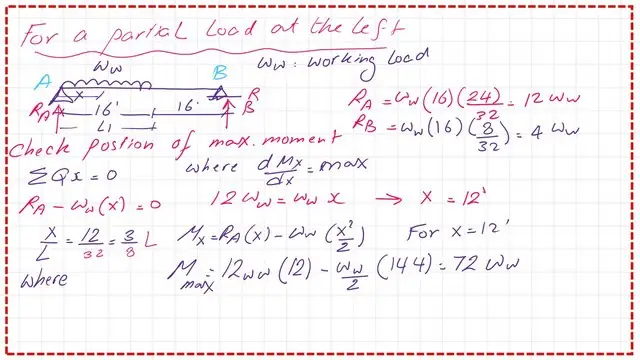 For a partial Load at the left
Ww
Ww: working Load
A
B
x
RA
16'
16'
R
B
L1
RA = Ww(16)(24)/32 = 12 Ww
RB = Ww(16)(8/32) = 4 Ww
Check postion of max. moment
ΣQx = 0
where dMx/dx = max
RA - Ww(x) = 0
12Ww = Ww x → X = 12'
X/L = 12/32 = 3/8 L
Mx = RA(x) - Ww(x²/2)
For x = 12'
where
Mmax = 12Ww(12) - Ww/2 (144) = 72 Ww